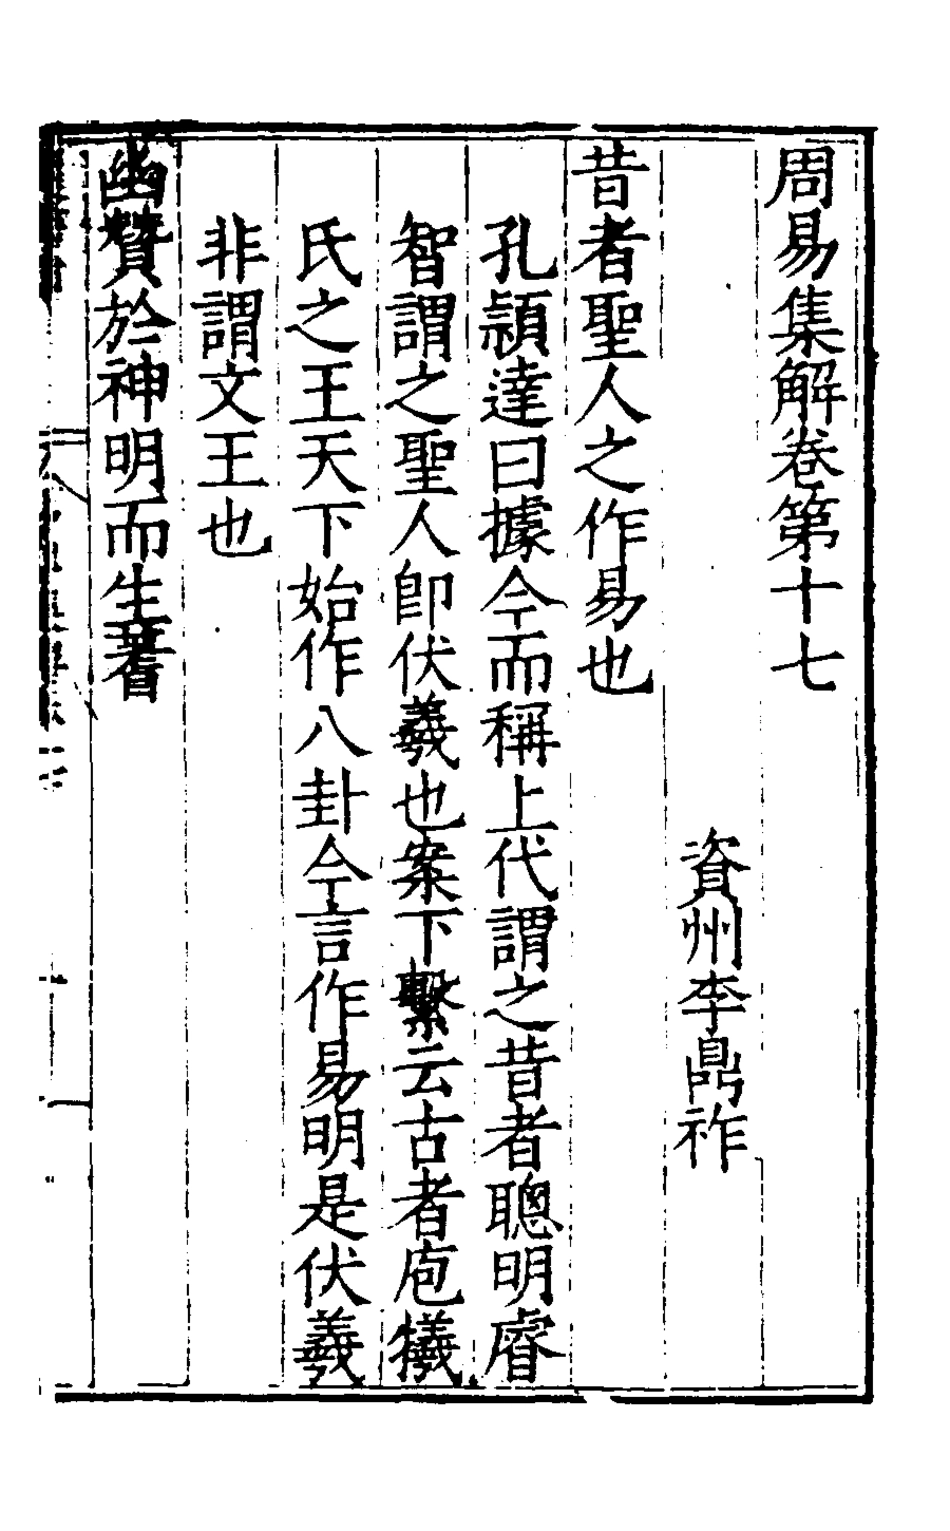 周易集解卷第十七
資州李鼎祚
昔者聖人之作易也
孔頴達曰據今而稱上代謂之昔者聰明睿
智謂之聖人卽伏羲也案下繫云古者庖犧
氏之王天下始作八卦今言作易明是伏羲
非謂文王也
幽贊於神明而生蓍